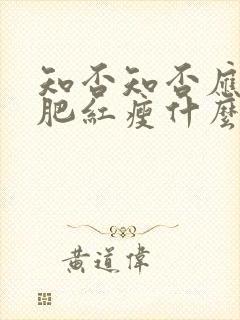 知否知否應
肥紅瘦什麼
黃道偉